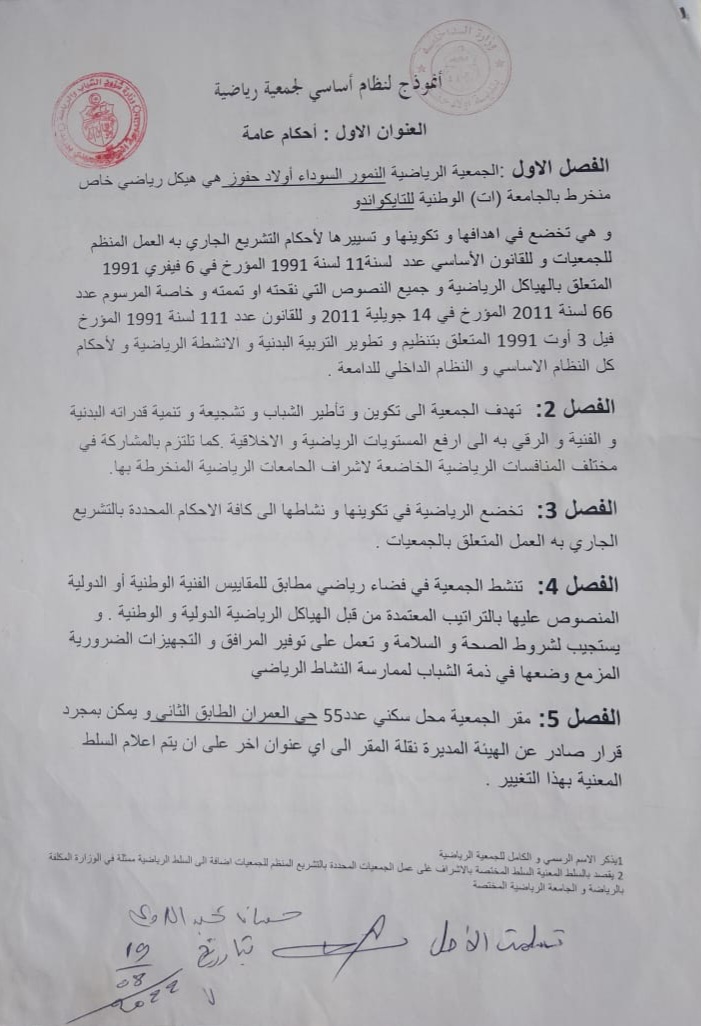 1
أنموذج لنظام أساسي لجمعية رياضية
العنوان الاول : أحكام عامة
الفصل الاول :الجمعية الرياضية النمور السوداء أولاد حفوز هي هيكل رياضي خاص
منخرط بالجامعة (ات) الوطنية للتايكواندو
و هي تخضع في اهدافها و تكوينها و تسييرها لأحكام التشريع الجاري به العمل المنظم
للجمعيات و للقانون الأساسي عدد لسنة11 لسنة 1991 المؤرخ في 6 فيفري 1991
المتعلق بالهياكل الرياضية و جميع النصوص التي نقحته او تممته و خاصة المرسوم عدد
66 لسنة 2011 المؤرخ في 14 جويلية 2011 و للقانون عدد 111 لسنة 1991 المؤرخ
فيل 3 أوت 1991 المتعلق بتنظيم و تطوير التربية البدنية و الانشطة الرياضية و لأحكام
كل النظام الاساسي و النظام الداخلي للدامعة .
الفصل 2: تهدف الجمعية الى تكوين و تأطير الشباب و تشجيعة و تنمية قدراته البدنية
و الفنية و الرقي به الى ارفع المستويات الرياضية و الاخلاقية .كما تلتزم بالمشاركة في
مختلف المنافسات الرياضية الخاضعة لاشراف الحامعات الرياضية المنخرطة بها.
الفصل 3: تخضع الرياضية في تكوينها و نشاطها الى كافة الاحكام المحددة بالتشريع
الجاري به العمل المتعلق بالجمعيات .
الفصل 4: تنشط الجمعية في فضاء رياضي مطابق للمقاييس الفنية الوطنية أو الدولية
المنصوص عليها بالتراتيب المعتمدة من قبل الهياكل الرياضية الدولية و الوطنية . و
يستجيب لشروط الصحة و السلامة و تعمل على توفير المرافق و التجهيزات الضرورية
المزمع وضعها في ذمة الشباب لممارسة النشاط الرياضي
الفصل 5: مقر الجمعية محل سكني عدد55 حي العمران الطابق الثاني و يمكن بمجرد
قرار صادر عن الهيئة المديرة نقلة المقر الى اي عنوان اخر على ان يتم اعلام السلط
المعنية بهذا التغيير .
1يذكر الاسم الرسمي و الكامل للجمعية الرياضية
2 يقصد بالسلط المعنية السلط المختصة بالاشراف على عمل الجمعيات المحددة بالتشريع المنظم للجمعيات اضافة الى السلط الرياضية ممثلة في الوزارة المكلفة
بالرياضة و الجامعة الرياضية المختصة
تسلمت الأصل
بتاريخ 19
08
2022